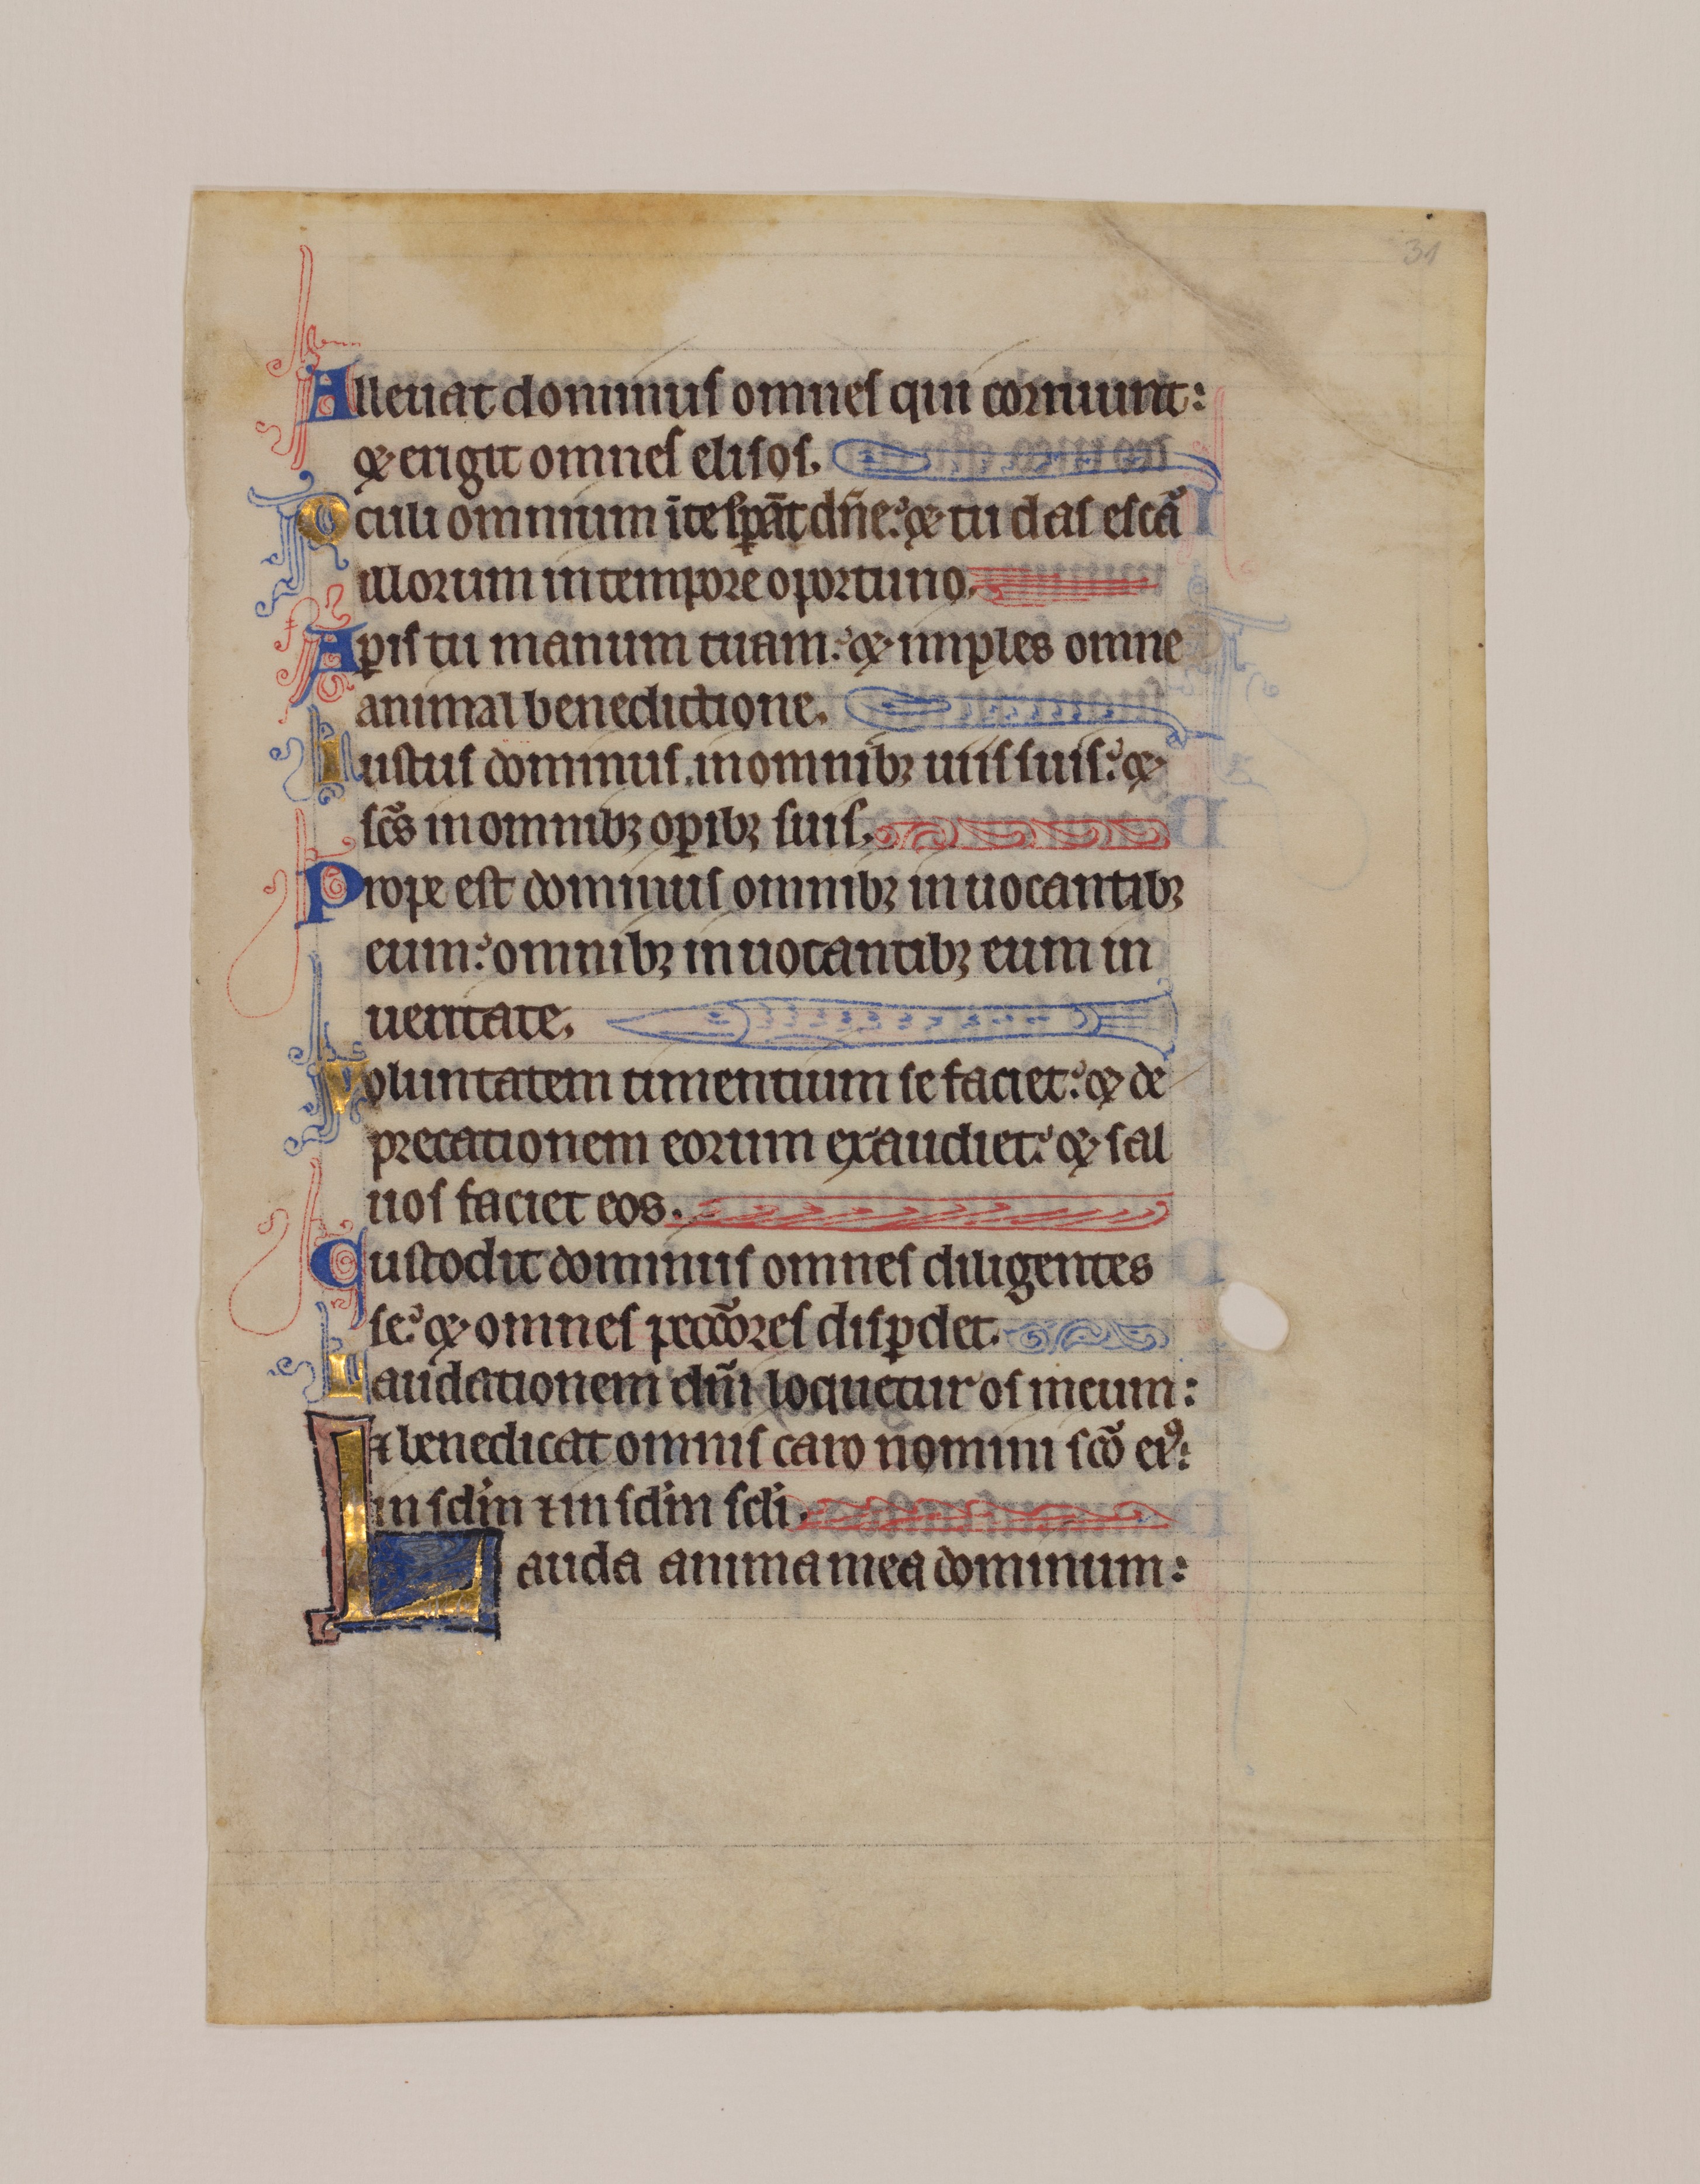 31
Alleuat dominus omnes qui corruunt:
& erigit omnes elisos.
Oculi omnium ī te sꝑāt dn̄e: & tu das escā
illorum in tempore oportuno.
Aꝑis tu manum tuam: & imples omne
animal benedictione.
Iustus dominus in omnibꝫ uiis suis: &
sc̄s in omnibꝫ oꝑibꝫ suis.
Prope est dominus omnibꝫ inuocantibꝫ
eum: omnibꝫ inuocantibꝫ eum in
ueritate.
Voluntatem timentium se faciet: & de
precationem eorum exaudiet: & sal
uos faciet eos.
Custodit dominus omnes diligentes
se: & omnes pecc̄ores disꝑdet.
Laudationem dn̄i loquetur os meum:
& benedicat omnis caro nomini sc̄o eiꝰ:
in sc̄lm ⁊ in sc̄lm sc̄li.
Lauda anima mea dominum: